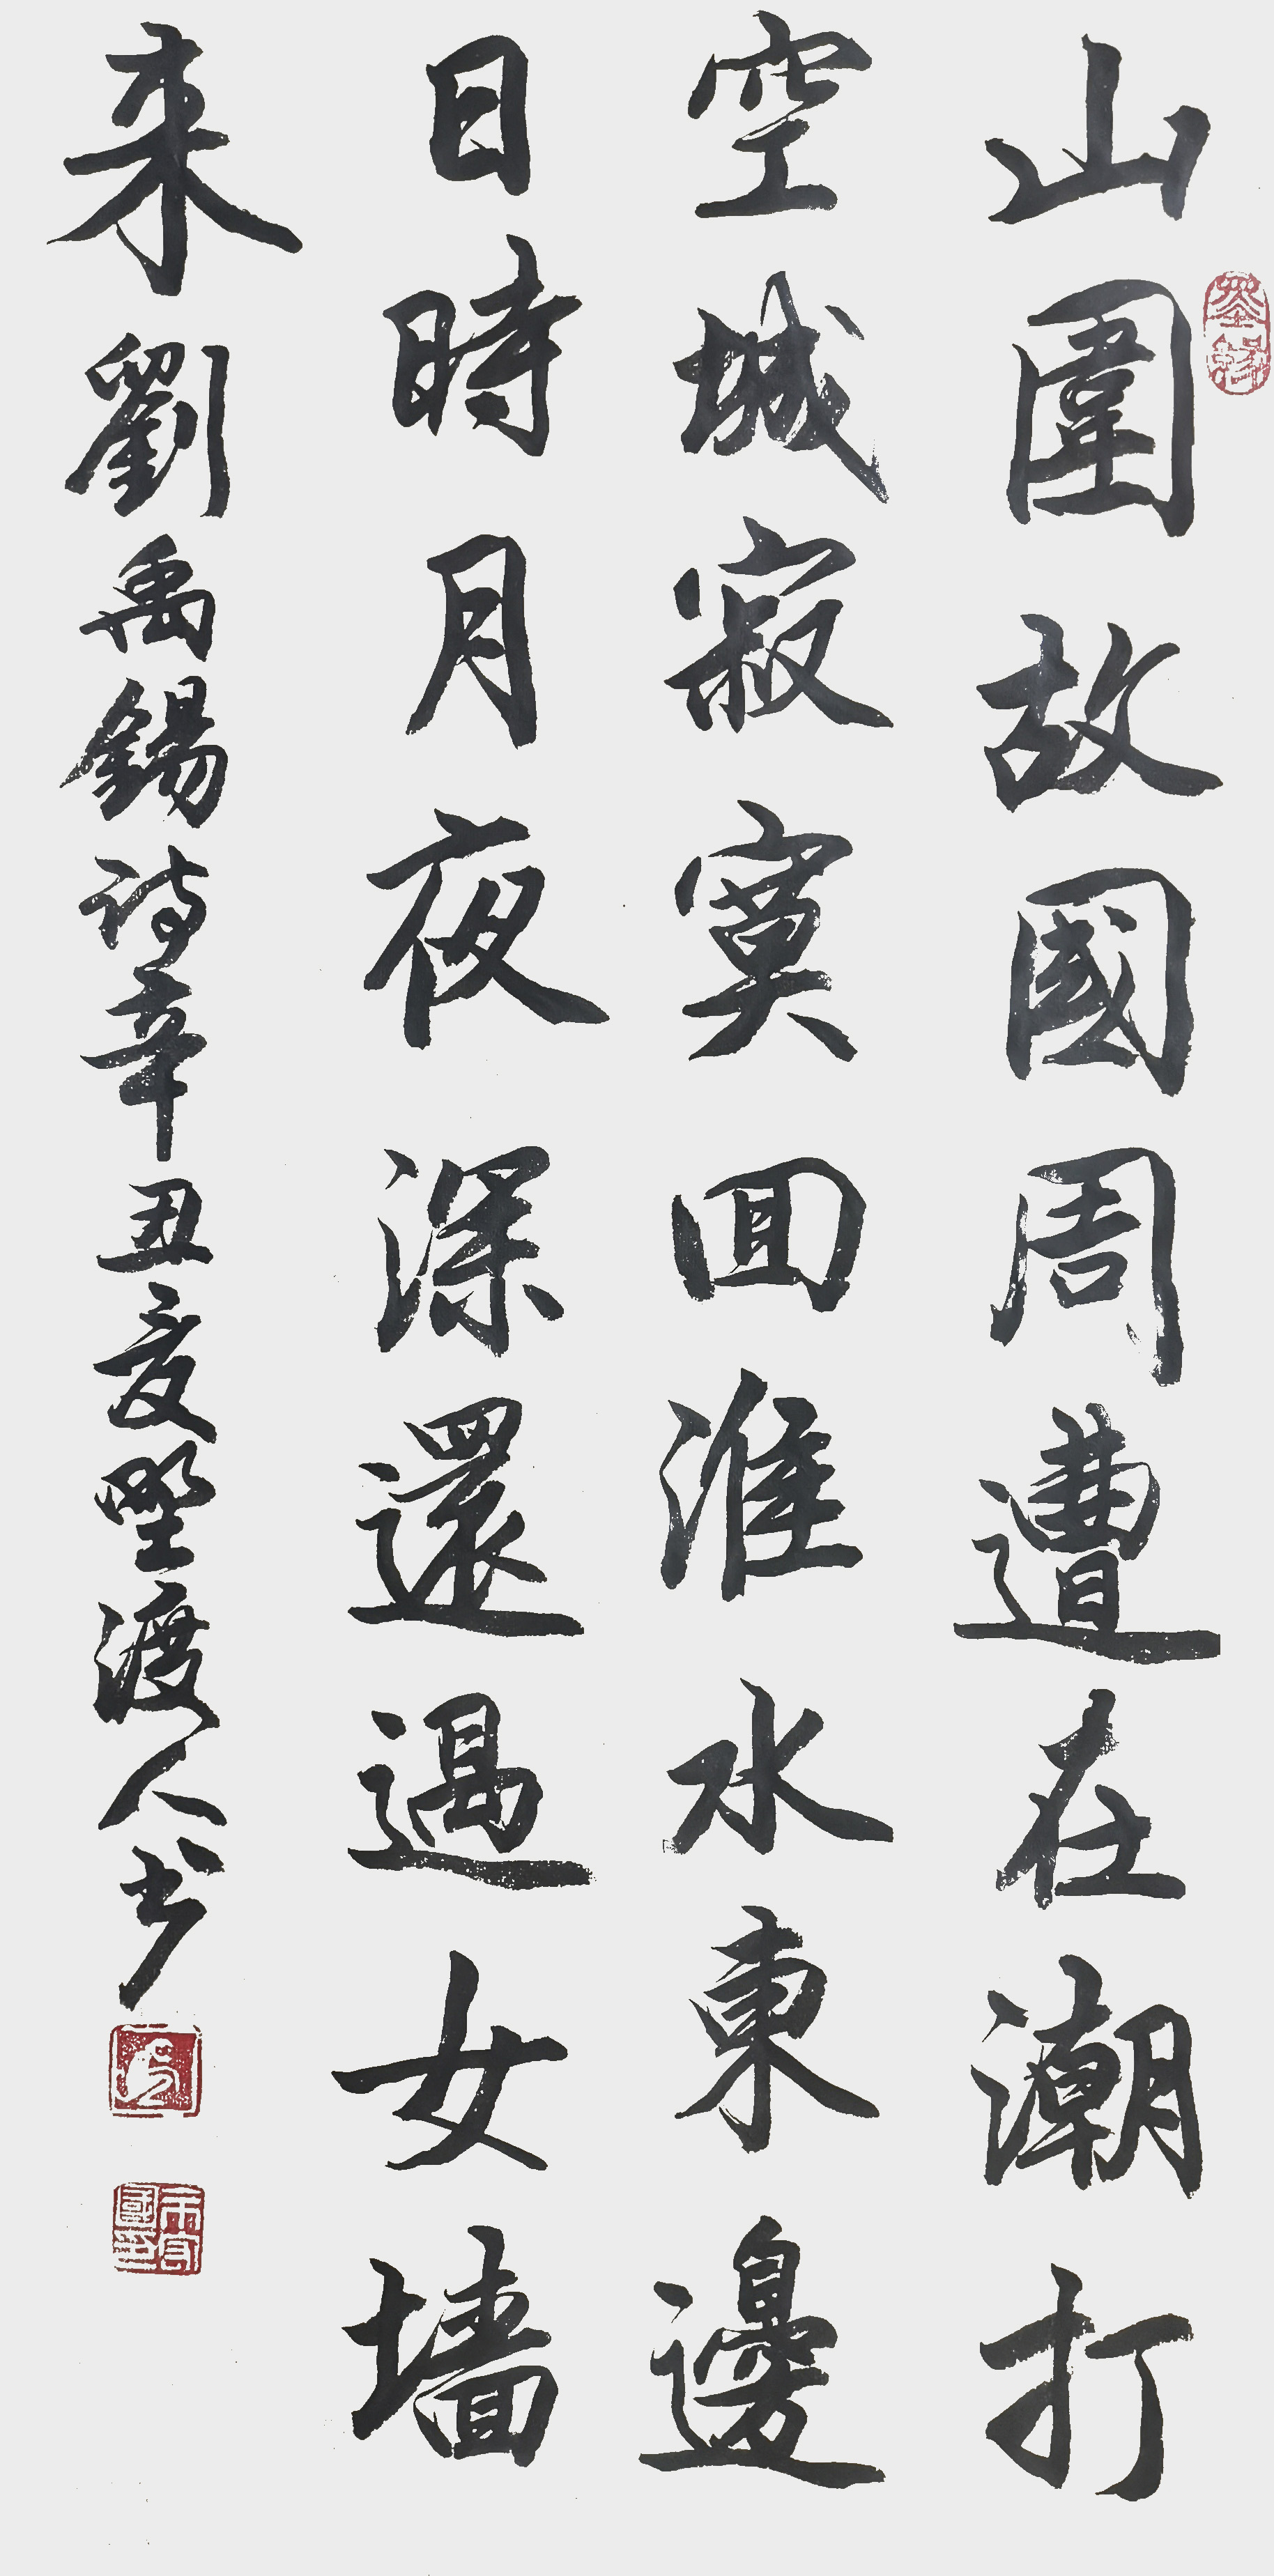 山圍故國周遭在潮打
空城寂寞囬淮水東邊
日時月夜深還過女墙
来劉禹錫詩辛丑夏野渡人书